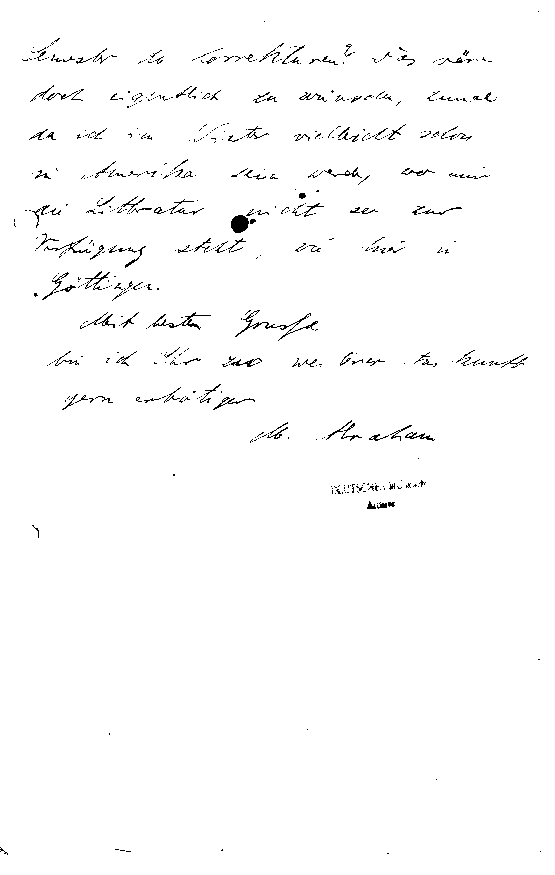 Semester zu korrekturen? Das wäre
doch eigentlich zu wünschen, zumal
da ich im Winter vielleicht schon
in Amerika sein werde, wo mir
die Litteratur nicht so zur
Verfügung steht, wie hier in
Göttingen.
Mit besten Grusse
bin ich Ihr zu weiterer Auskunft
gern erbötiger
M. Abraham
DEUTSCHES MUSEUM
Archiv